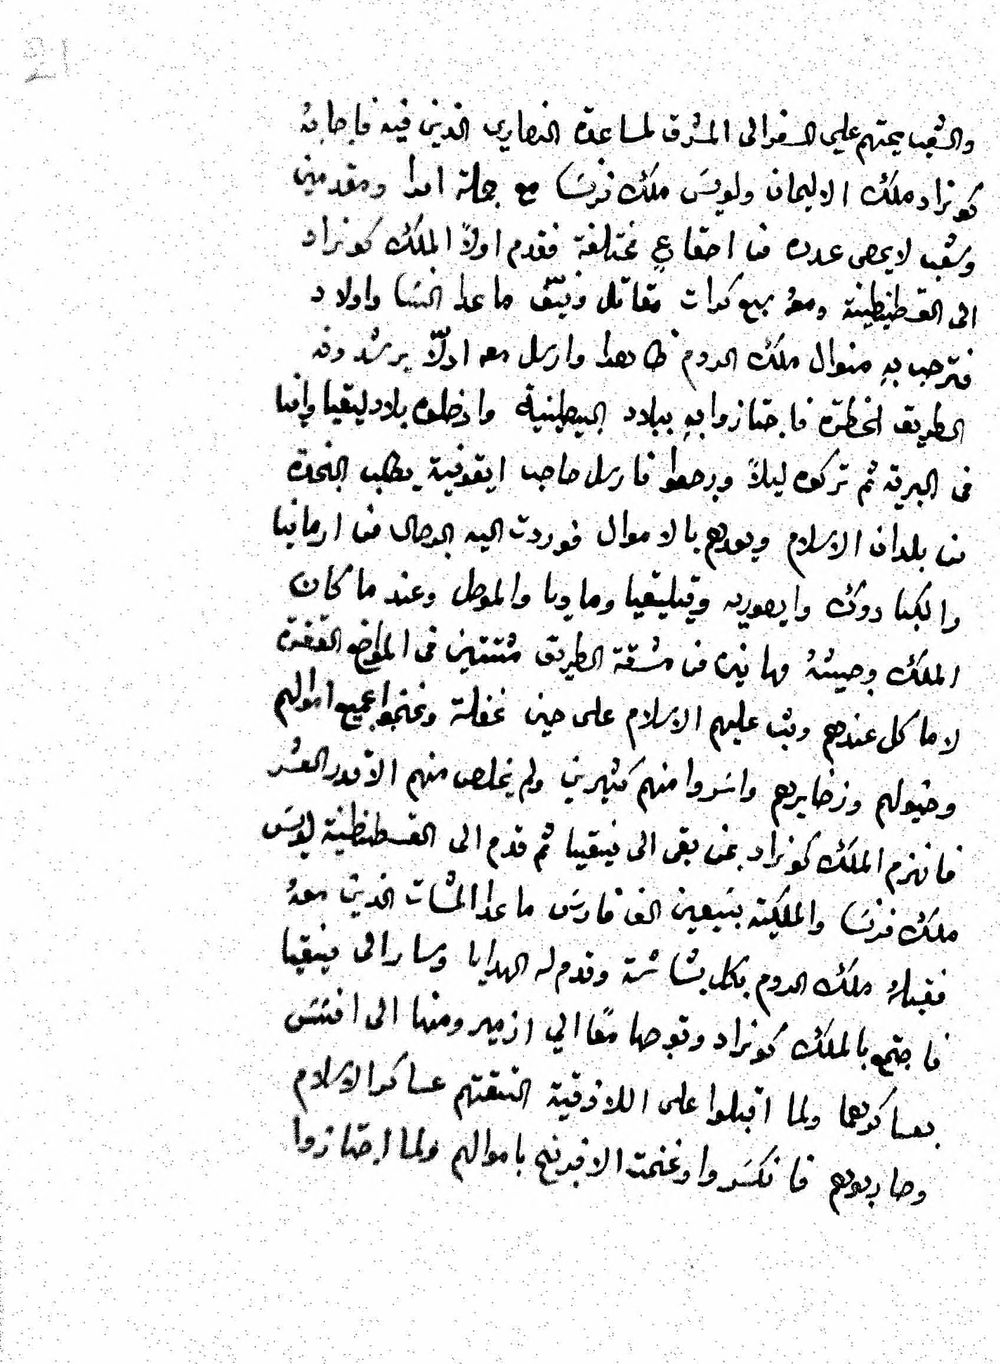 والشعب يحثهم على السفر الى المشرق لمساعدة النصارى الذين فيه فاجابه
كونراد ملك الاليمان ولويس ملك فرنسا مع جملة امرا ومقدمين
وشعب لا يحصى عدده من اصقاعٍ مختلفة فقدم اولاً الملك كونراد
الى القسطنطينية ومعه سبع كرات مقاتل ونيّف ما عدا النسا والاولاد
فترحب بهِ منوال ملك الروم ظاهرا وارسل معه ادلّا يرشدونه
الطريق الخطرة فاجتازوا بهِ ببلاد البيطينية وادخلوه بلاد ليقيا وانما
فى البرية ثم تركوه ليلاً ورجعوا فارسل صاحب ايقونية يطلب النجدة
من بلدان الاسلام ويعدهم بالاموال فوردت اليه الرجال من ارمانيا
والكبادوك وايصوريه وقيليقيا وماديا والموصل وعند ما كان
الملك وجيشهُ وهانين من مشقة الطريق مشتتين فى المواضع القفرة
لا ماكل عندهم وثب عليهم الاسلام على حين غفلة وغنموا جميع اموالهم
وخيولهم وزخايرهم واسروا منهم كثيرين ولم يخلص منهم الا قدر العشر
فانهزم الملك كونراد بمن بقى الى نيقيا ثم قدم الى القسطنطينية لويس
ملك فرنسا والمليكة بسبعين الف فارس ما عدا المشات الذين معهُ
فقبلهُ ملك الروم بكل بشاشة وقدم له الهدايا وسار الى نيقيا
فاجتمع بالملك كونراد وتوجها معًا الي ازمير ومنها الى افسس
بعساكرهما ولما اقبلوا على اللاذقية التقتهم عساكر الاسلام
وحاربوهم فانكسروا وغنمت الافرنج باموالهم ولما اجتازوا